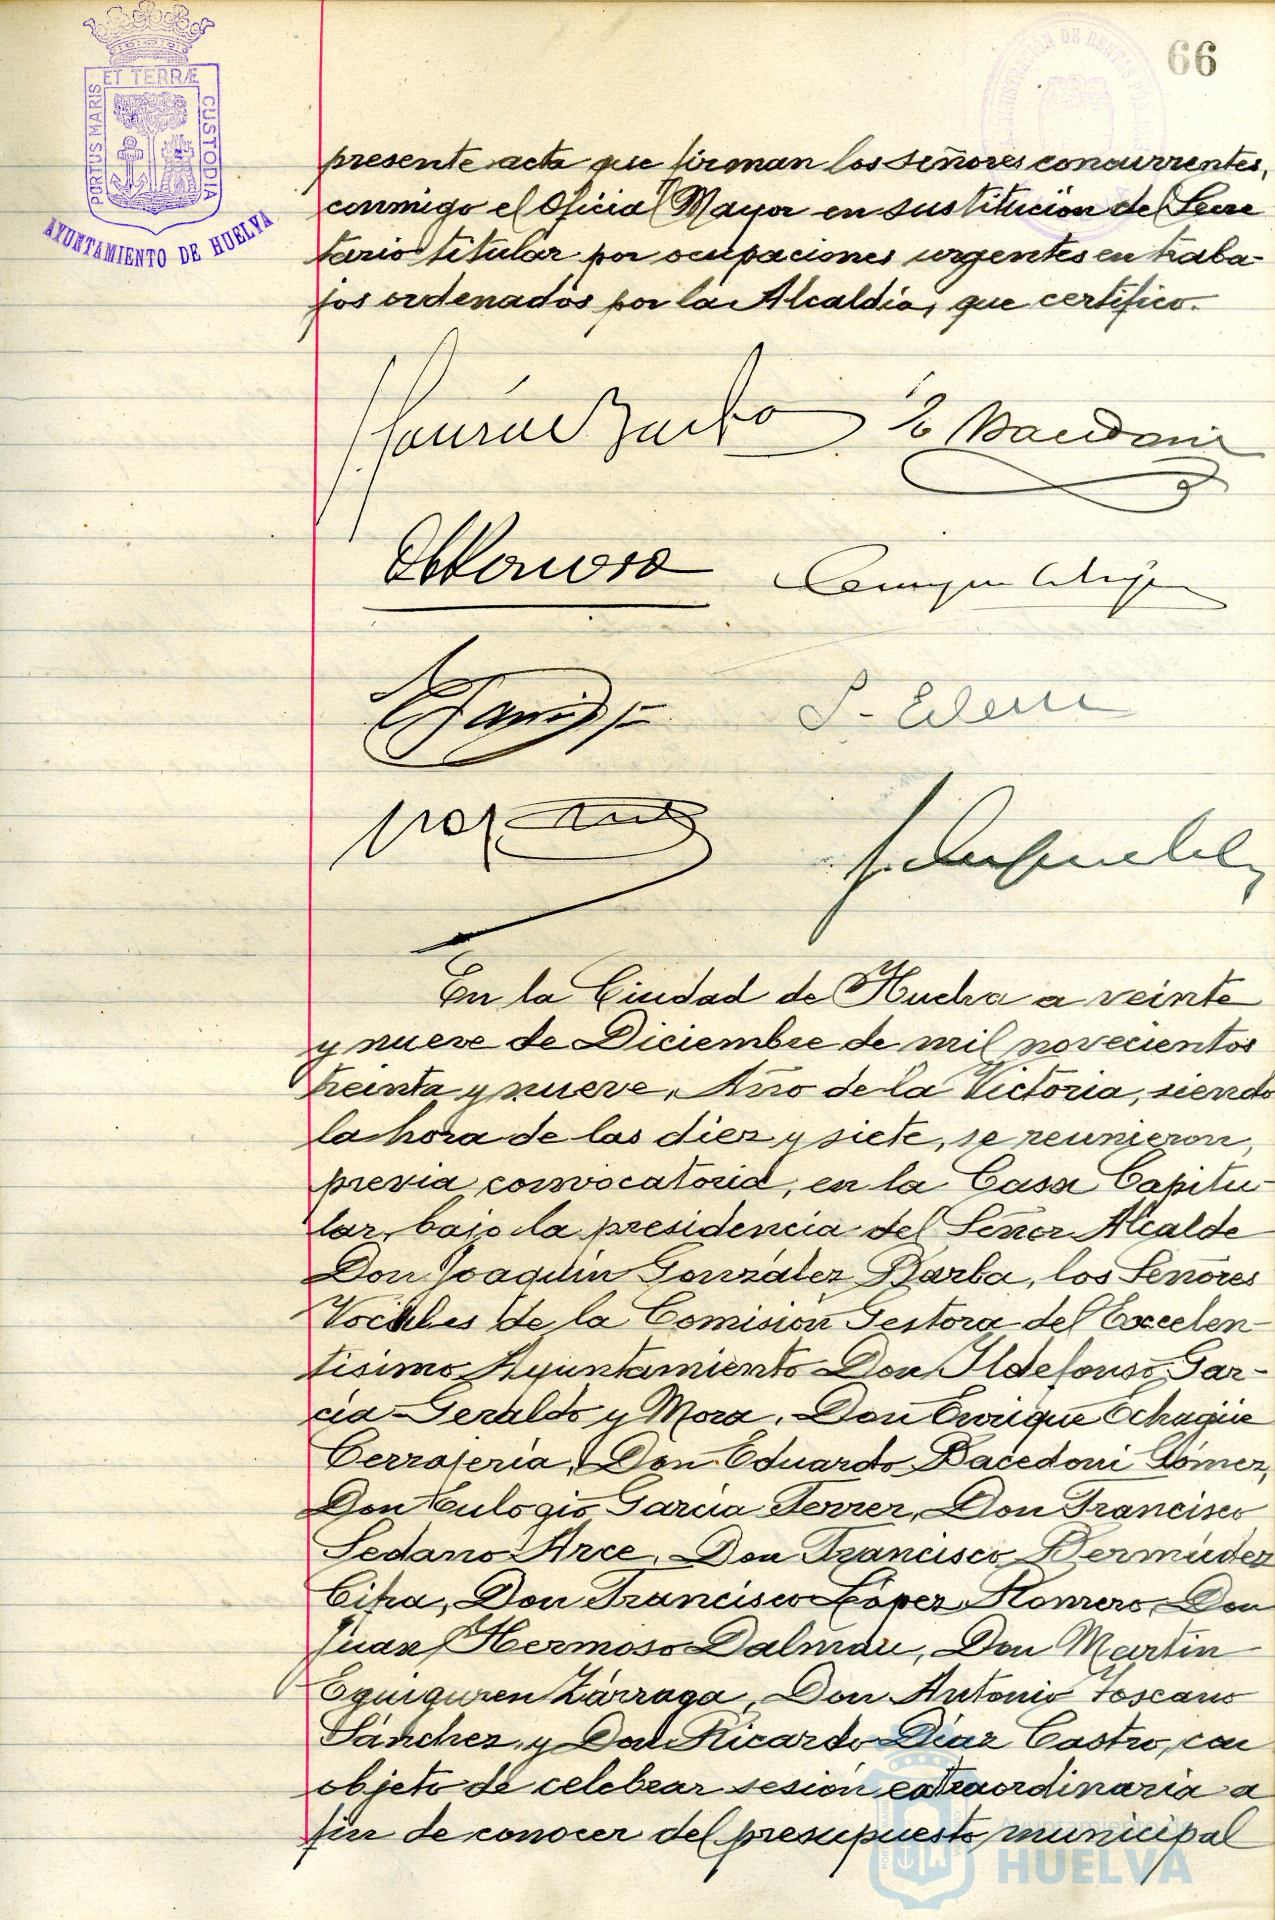 66
PORTUS MARIS ET TERRÆ CUSTODIA
AYUNTAMIENTO DE HUELVA
presente acta que firman los señores concurrentes,
conmigo el Oficial Mayor en sustitución del Secre
tario titular por ocupaciones urgentes en traba-
jos ordenados por la Alcaldía, que certifico.
En la Ciudad de Huelva a veinte
y nueve de Diciembre de mil novecientos
treinta y nueve, Año de la Victoria, siendo
la hora de las diez y siete, se reunieron,
previa convocatoria, en la Casa Capitu-
lar, bajo la presidencia del Señor Alcalde
Don Joaquín González Barba, los Señores
Vocales de la Comisión Gestora del Excelen-
tísimo Ayuntamiento Don Ildefonso Gar-
cía-Geraldo y Mora, Don Enrique Echagüe
Cerrajería, Don Eduardo Bacedoni Gómez,
Don Eulogio García Ferrer, Don Francisco
Sedano Arce, Don Francisco Bermúdez
Cifra, Don Francisco López Romero, Don
Juan Hermoso Dalmau, Don Martín
Eguiguren Zárraga, Don Antonio Toscano
Sánchez y Don Ricardo Díaz Castro, con
objeto de celebrar sesión extraordinaria a
fin de conocer del presupuesto municipal
Ayuntamiento de
HUELVA